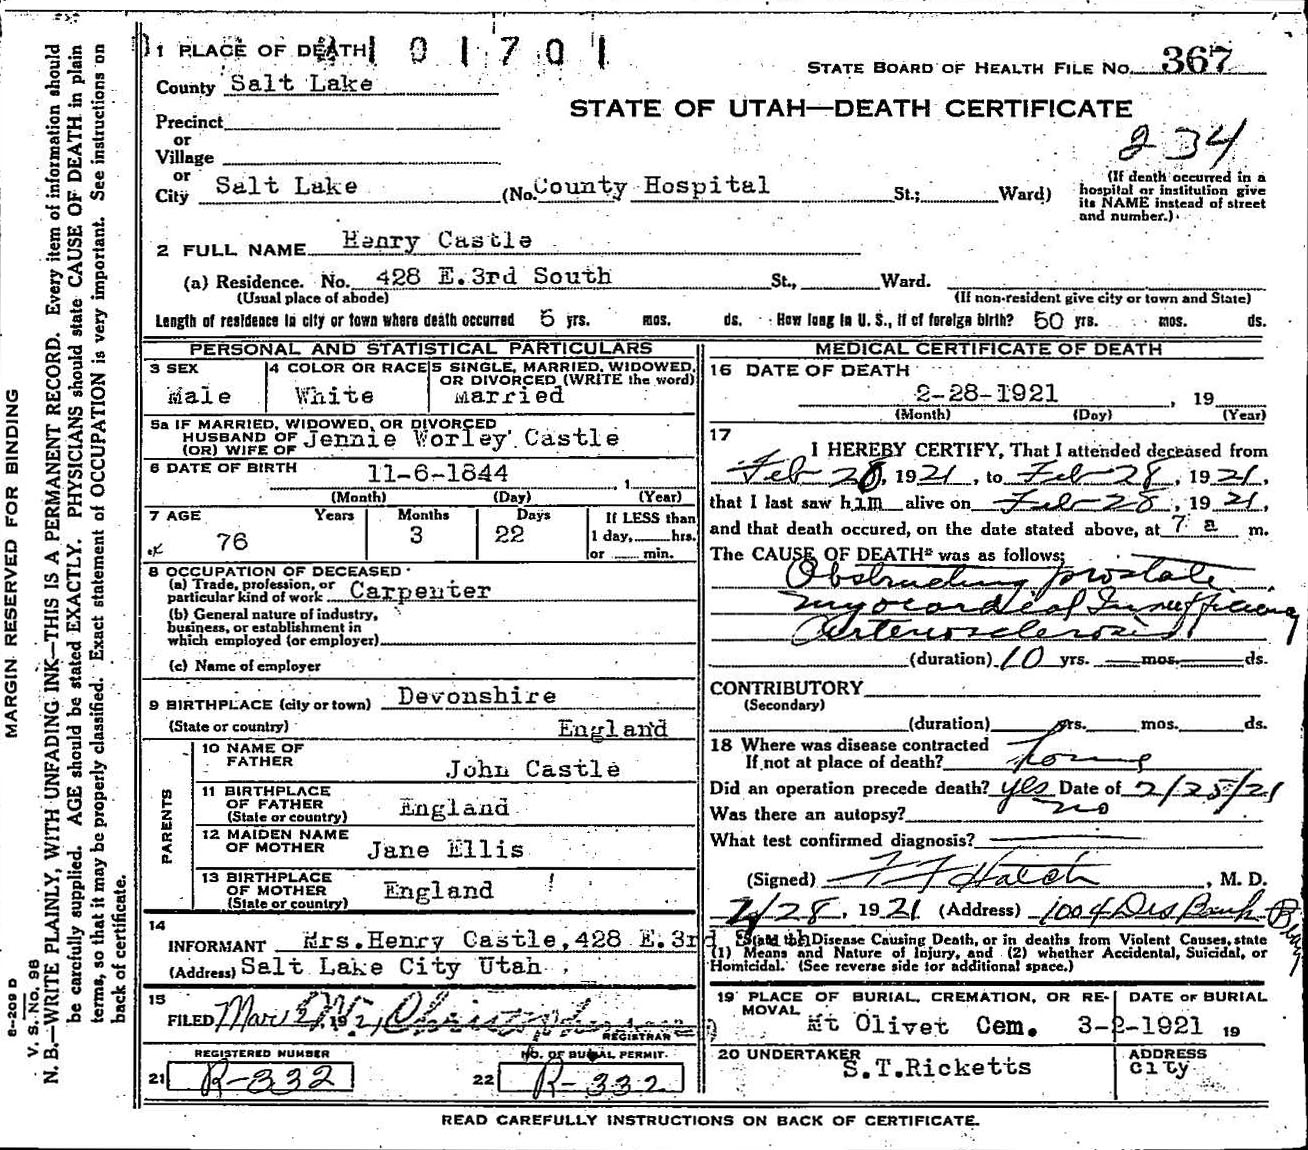 1 PLACE OF DEATH 1 0 1 7 0 1
STATE BOARD OF HEALTH FILE NO. 367
County Salt Lake
STATE OF UTAH—DEATH CERTIFICATE
234
Precinct
or
Village
or
City Salt Lake (No. County Hospital St.; Ward)
(If death occurred in a
hospital or institution give
its NAME instead of street
and number.)
2 FULL NAME Henry Castle
(a) Residence. No. 428 E.3rd South St., Ward.
(Usual place of abode) (If non-resident give city or town and State)
Length of residence in city or town where death occurred 5 yrs. mos. ds. How long in U. S., if of foreign birth? 50 yrs. mos. ds.
PERSONAL AND STATISTICAL PARTICULARS
3 SEX
Male
4 COLOR OR RACE
White
5 SINGLE, MARRIED, WIDOWED,
OR DIVORCED (WRITE the word)
Married
5a IF MARRIED, WIDOWED, OR DIVORCED
HUSBAND OF
(OR) WIFE OF Jennie Worley Castle
6 DATE OF BIRTH 11-6-1844
(Month) (Day) (Year)
7 AGE Years Months Days
76 3 22
If LESS than
1 day, hrs.
or min.
8 OCCUPATION OF DECEASED
(a) Trade, profession, or
particular kind of work Carpenter
(b) General nature of industry,
business, or establishment in
which employed (or employer)
(c) Name of employer
9 BIRTHPLACE (city or town) Devonshire
(State or country) England
PARENTS
10 NAME OF
FATHER John Castle
11 BIRTHPLACE
OF FATHER England
(State or country)
12 MAIDEN NAME
OF MOTHER Jane Ellis
13 BIRTHPLACE
OF MOTHER England
(State or country)
14
INFORMANT Mrs.Henry Castle, 428 E.3rd South
(Address) Salt Lake City Utah
15
FILED Mar 2 192
REGISTRAR
REGISTERED NUMBER
21 R-332
NO. OF BURIAL PERMIT.
22 R-332
MEDICAL CERTIFICATE OF DEATH
16 DATE OF DEATH
2-28-1921, 19
(Month) (Day) (Year)
17
I HEREBY CERTIFY, That I attended deceased from
Feb 20, 1921, to Feb 28, 1921,
that I last saw him alive on Feb 28, 1921,
and that death occured, on the date stated above, at 7 a m.
The CAUSE OF DEATH* was as follows:
Obstructing prostate
myocardial Insufficiency
Arteriosclerosis
(duration) 10 yrs. mos. ds.
CONTRIBUTORY
(Secondary)
(duration) yrs. mos. ds.
18 Where was disease contracted
If not at place of death? home
Did an operation precede death? yes Date of 2/25/21
Was there an autopsy? no
What test confirmed diagnosis?
(Signed) F F Hatch, M. D.
2/28, 1921 (Address) 1004 Des Bank Bldg
State the Disease Causing Death, or in deaths from Violent Causes, state
(1) Means and Nature of Injury, and (2) whether Accidental, Suicidal, or
Homicidal. (See reverse side for additional space.)
19 PLACE OF BURIAL, CREMATION, OR RE-
MOVAL
Mt Olivet Cem.
DATE OF BURIAL
3-2-1921 19
20 UNDERTAKER
S.T.Ricketts
ADDRESS
City
READ CAREFULLY INSTRUCTIONS ON BACK OF CERTIFICATE.
MARGIN RESERVED FOR BINDING
8—209 D
V. S. No. 98
N. B.—WRITE PLAINLY, WITH UNFADING INK—THIS IS A PERMANENT RECORD. Every item of information should
be carefully supplied. AGE should be stated EXACTLY. PHYSICIANS should state CAUSE OF DEATH in plain
terms, so that it may be properly classified. Exact statement of OCCUPATION is very important. See instructions on
back of certificate.